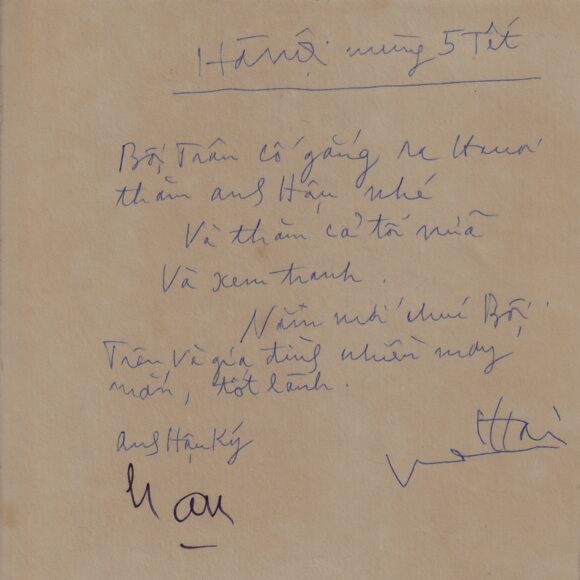 Hà Nội mùng 5 Tết
Bội Trân cố gắng ra Hanoi
thăm anh Hậu nhé
Và thăm cả tôi nữa
Và xem tranh.
Năm mới chúc Bội
Trân và gia đình nhiều may
mắn, tốt lành.
anh Hậu ký
Hậu